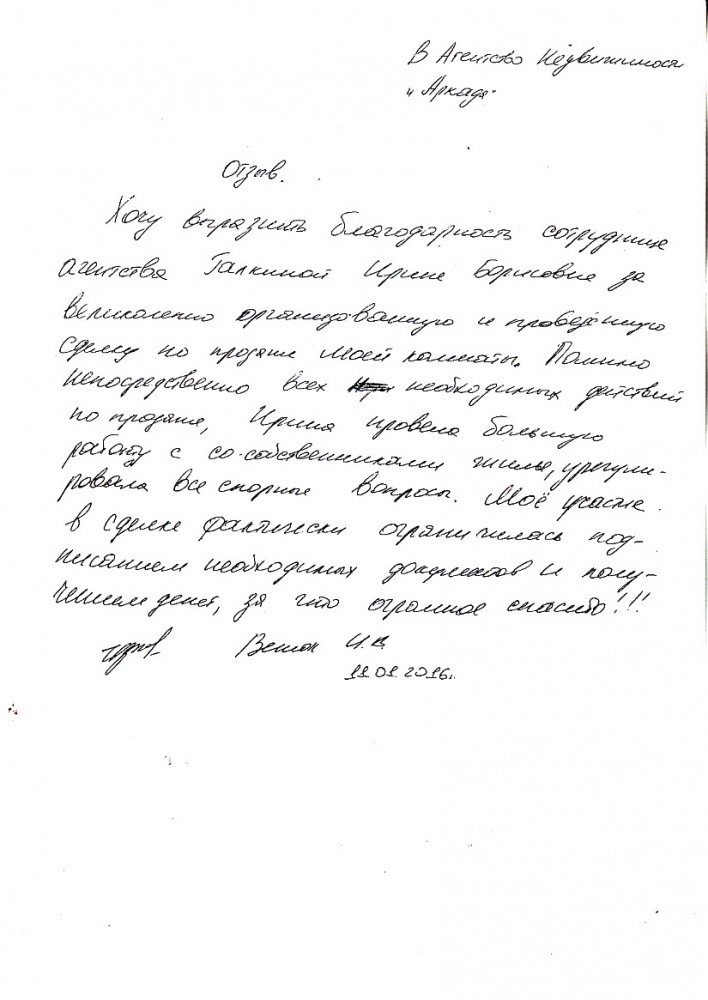 В Агентство Недвижимости
"Аркада"
Отзыв.
Хочу выразить благодарность сотруднице
агентства Галкиной Ирине Борисовне за
великолепно организованную и проведённую
сделку по продаже моей комнаты. Помимо
непосредственно всех необходимых действий
по продаже, Ирина провела большую
работу с со-собственниками жилья, урегули-
ровала все спорные вопросы. Моё участие
в сделке фактически ограничилась под-
писанием необходимых документов и полу-
чением денег, за что огромное спасибо!!!
И.В.
11.01.2016г.